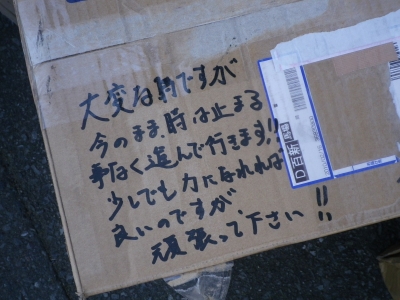 大変な時ですが
今のまま、時は止まる
事なく進んで行きます!!
少しでも力になれれば
良いのですが
頑張って下さい!!